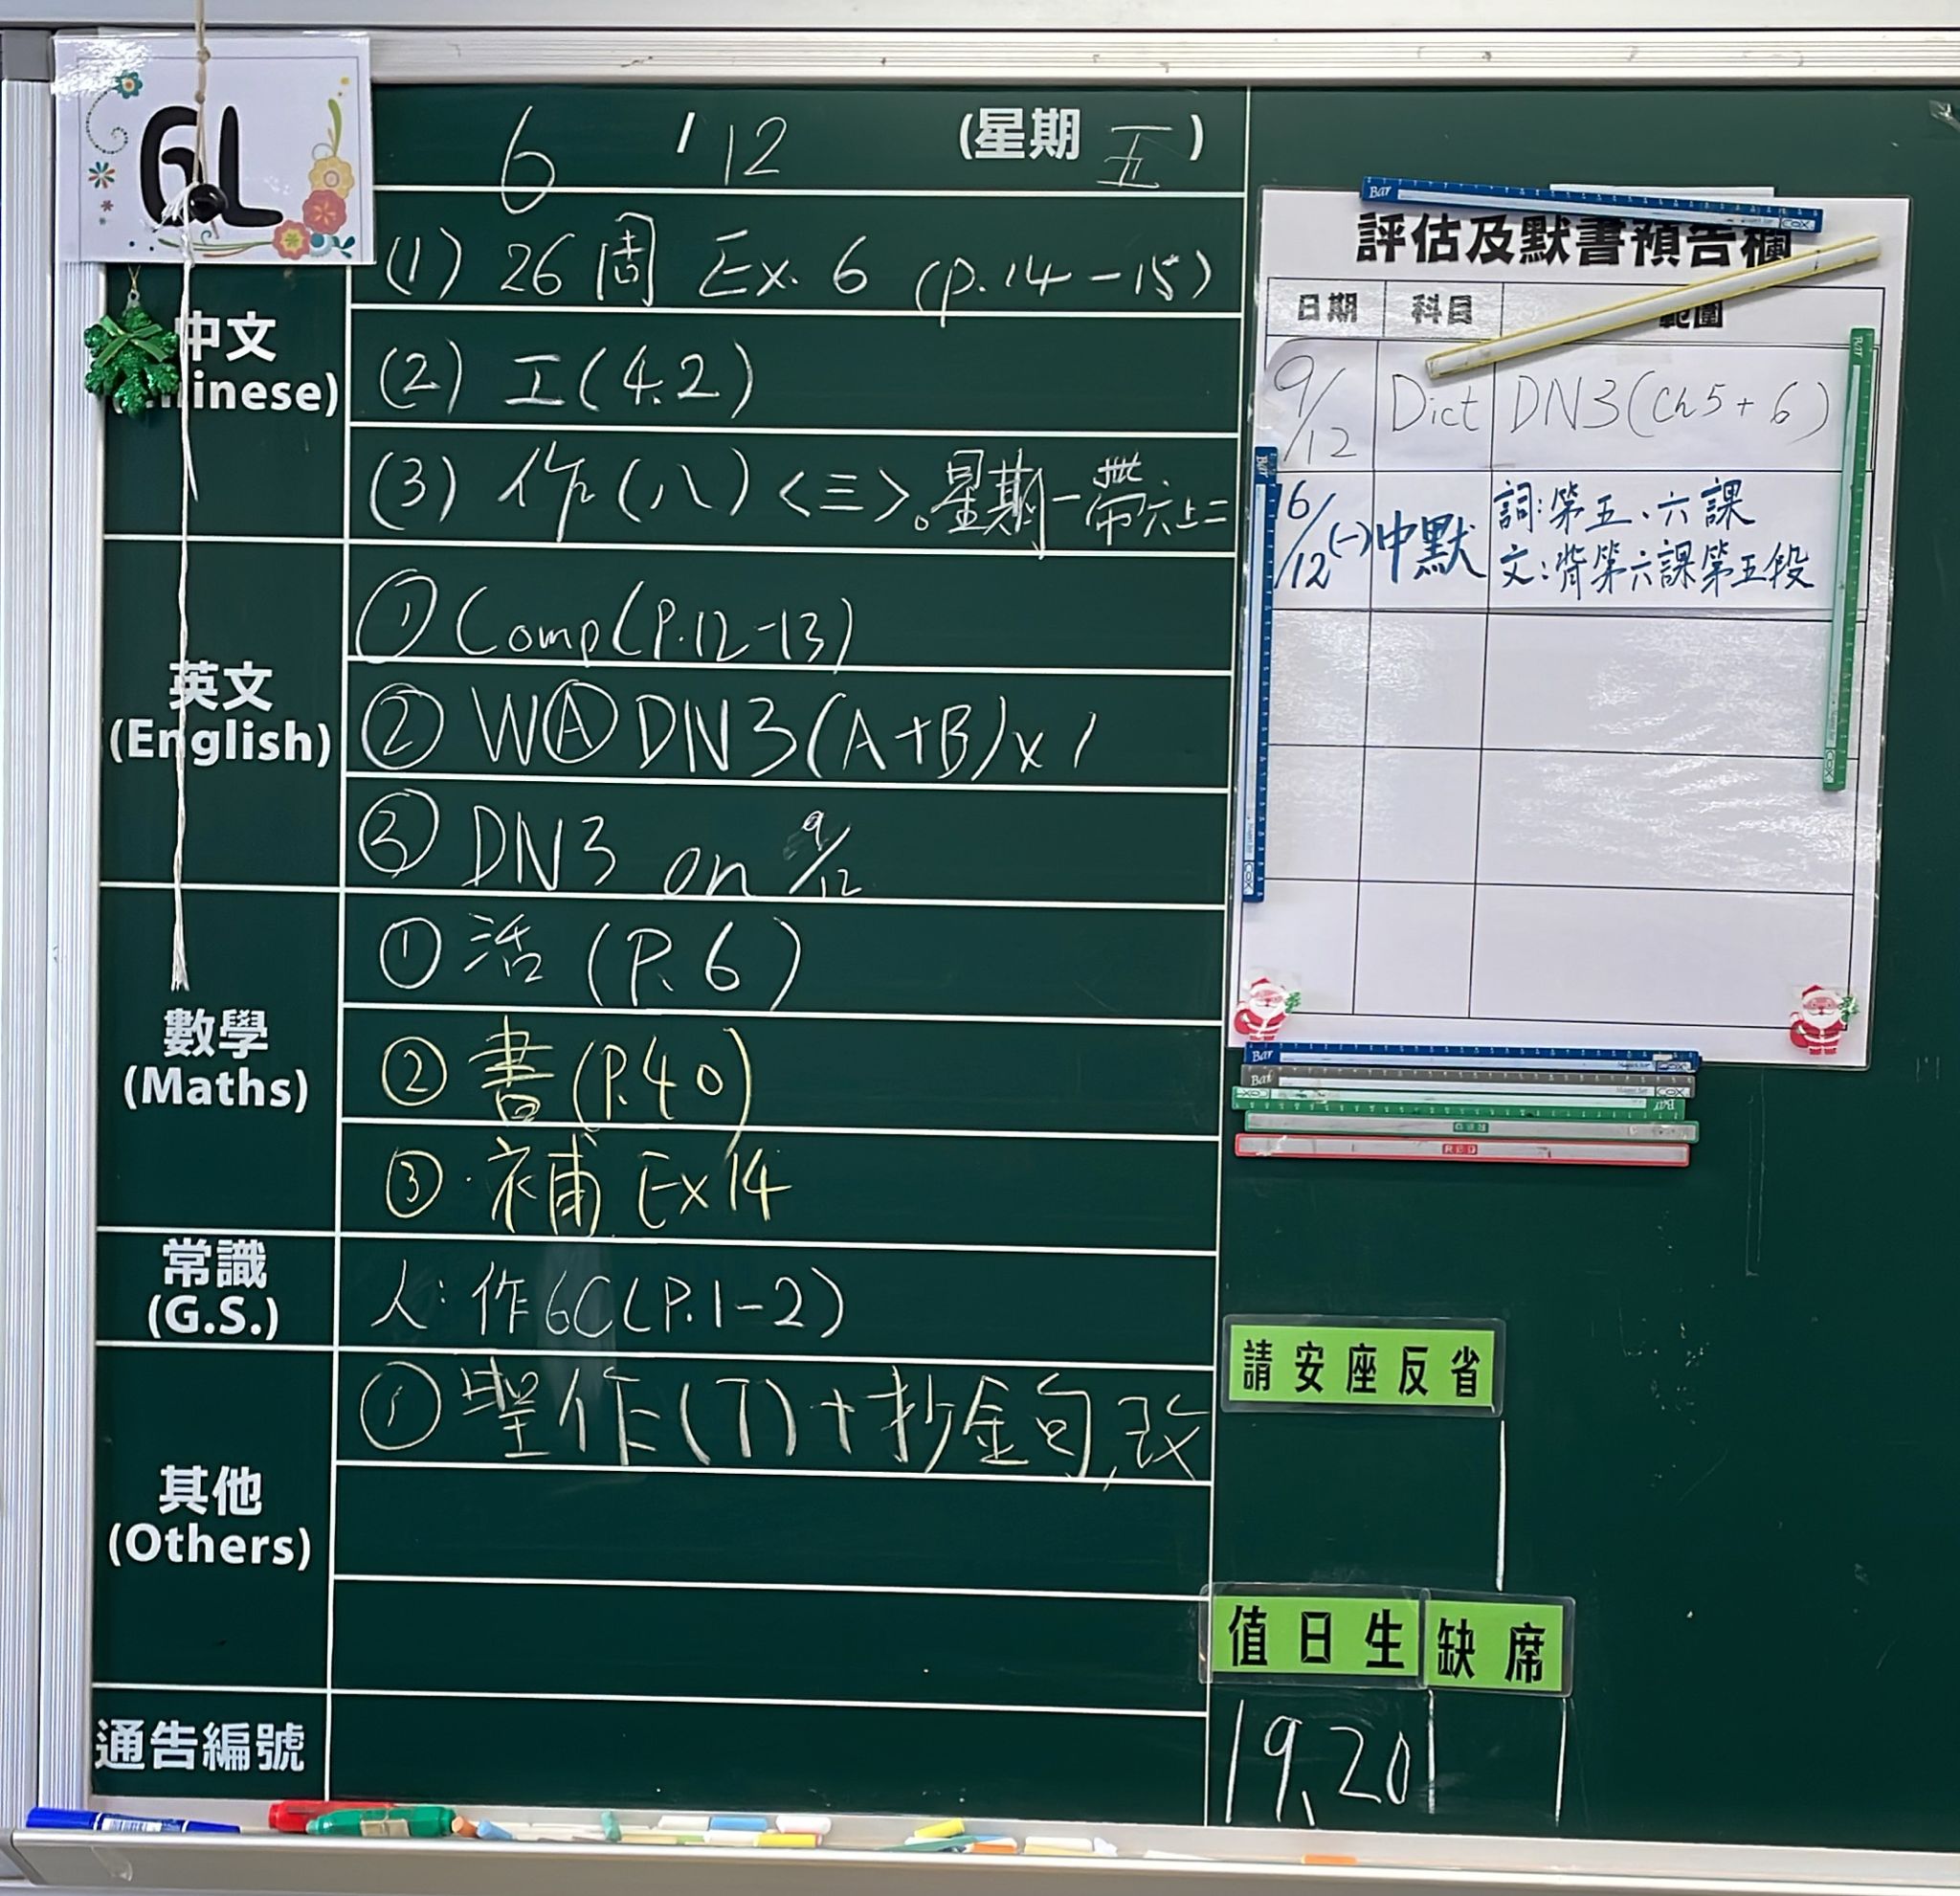 6L
6 / 12 (星期 五)
中文
inese)
(1) 26周 Ex. 6 (p.14-15)
(2) 工(4.2)
(3) 作(八)<三>。星期一帶六上二
英文
(English)
① Comp(P.12-13)
② WⒶ DN3(A+B)x1
③ DN3 on 9/12
數學
(Maths)
① 活 (P.6)
② 書(P.40)
③ 補 Ex14
常識
(G.S.)
人: 作6C(P.1-2)
其他
(Others)
① 聖作(7)+抄金句,改
通告編號
評估及默書預告欄
日期 科目 範圍
9/12 Dict DN3(Ch5+6)
16/12(一) 中默 詞:第五、六課
文:背第六課第五段
請安座反省
值日生 缺席
19,20